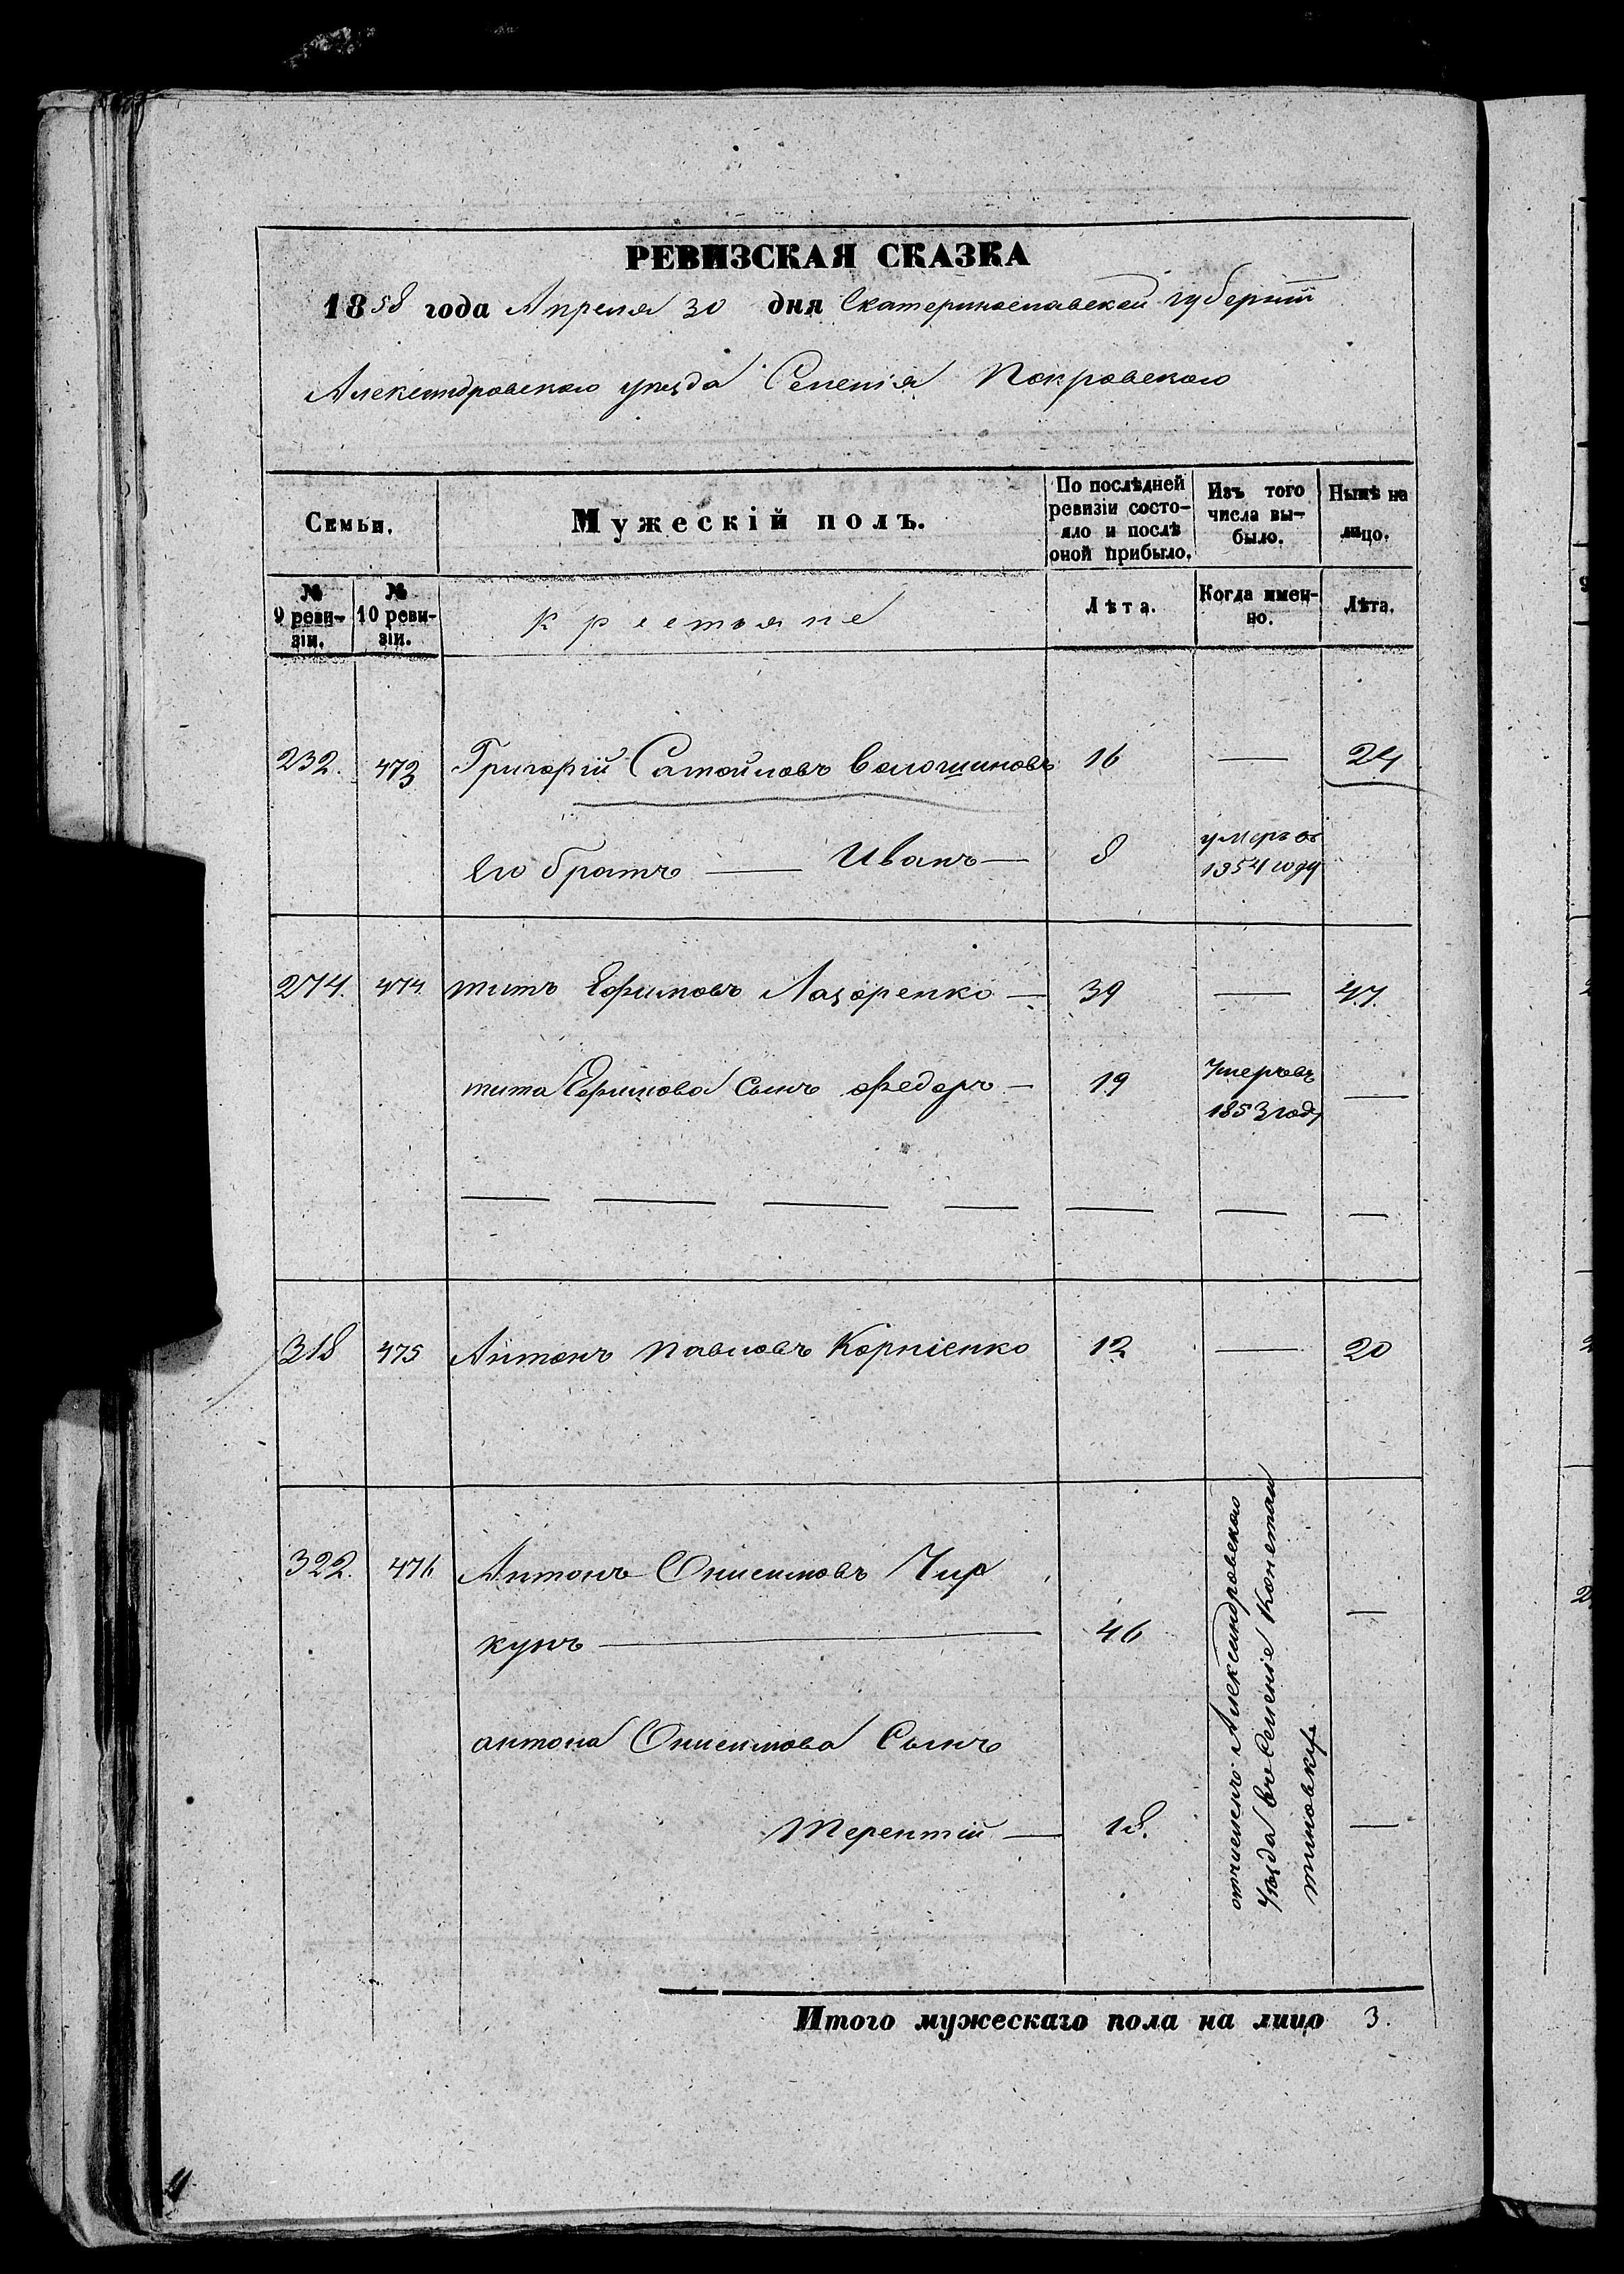 РЕВИЗСКАЯ СКАЗКА
1858 года Апреля 30 дня Екатеринославской губерніи
Александровского уезда Селенія Покровского
Семьи.
Мужескій полъ.
По послѣдней ревизіи состо-
яло и послѣ
оной прибыло.
Изъ того
числа вы-
было.
Нынѣ на
лицо.
№ 9 реви-
зіи.
№ 10 реви-
зіи.
крестьяне
Лѣта.
Когда имен-
но.
Лѣта.
232. 473 Григорій Самойловъ Волошиновъ 16 — 24
Его братъ — Иванъ — 8 умеръ въ
1854 году
274. 474. титъ Ефимовъ Лазоренко — 39 — 47.
тита Ефимова Сынъ Федоръ — 19 Умеръ въ
1853 году —
— — — — — — —
318 475 Антонъ Павловъ Корніенко 12 — 20
322. 476 Антонъ Онисимовъ Чир
кунъ — 46 —
антона Онисимова Сынъ
Терентій — 18. —
отчисленъ Александровского
Уезда въ Селеніе Констан
тиновку
Итого мужескаго пола на лицо 3.